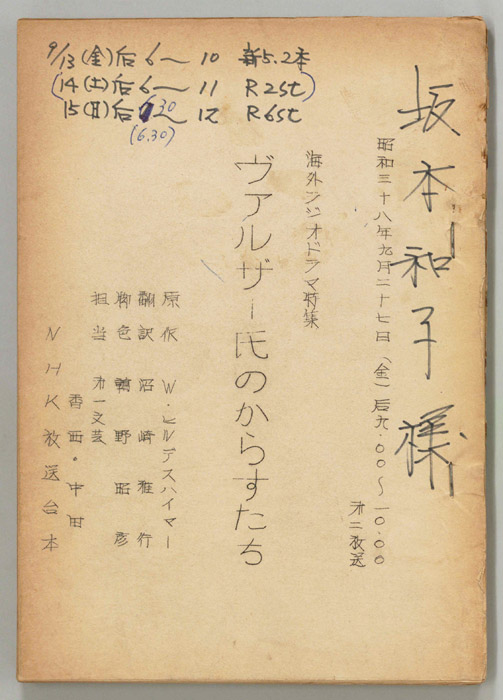 9/13(金)后6〜10 新5.2本
(14(土)后6〜11 R2st)
15(日)后6.30〜12 R6st
(6.30)
坂本和子様
昭和三十八年九月二十七日(金)后九.00〜一0.00
才二放送
海外ラジオドラマ特集
ヴァルザー氏のからすたち
原作 W・ヒルデスハイマー
翻訳 沼崎雅行
脚色 鶴野昭彦
担当 才一文芸
香西・中田
NHK放送台本